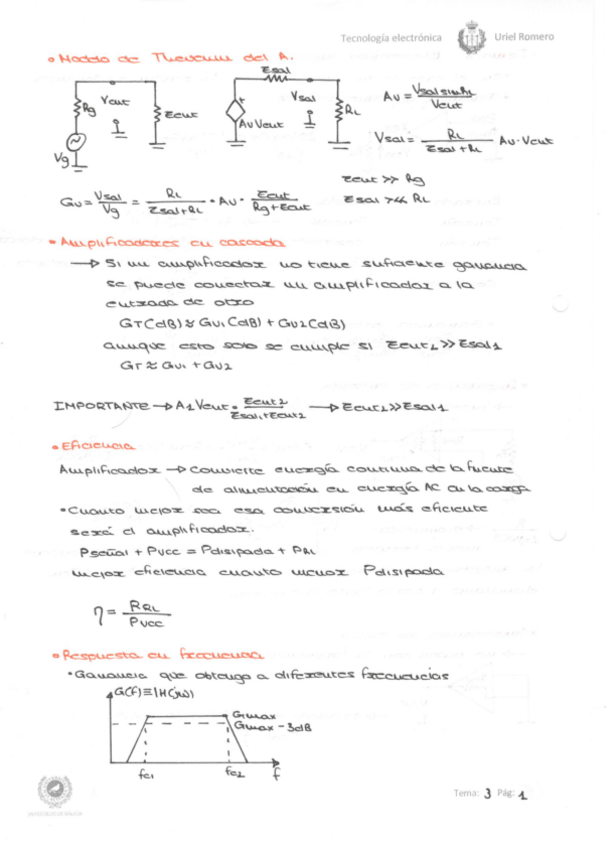 Tecnología electrónica Uriel Romero
• Modelo de Thevenin del A.
Rg Vent Zent Vg
Zsal + AvVent Vsal RL
Av = Vsal sin RL / Vent
Vsal = RL / Zsal + RL Av · Vent
Gv = Vsal / Vg = RL / Zsal + RL · Av · Zent / Rg + Zent
Zent >> Rg
Zsal << RL
• Amplificadores en cascada
→ Si un amplificador no tiene suficiente ganancia
se puede conectar un amplificador a la
entrada de otro
GT(dB) ≈ Gv1(dB) + Gv2(dB)
aunque esto solo se cumple si Zent2 >> Zsal1
GT ≈ Gv1 + Gv2
IMPORTANTE → A1Vent · Zent2 / Zsal1 + Zent2 → Zent2 >> Zsal1
• Eficiencia
Amplificador → Convierte energía continua de la fuente
de alimentación en energía AC en la carga
• Cuanto mejor sea esa conversión más eficiente
será el amplificador.
Pseñal + Pvcc = Pdisipada + PRL
mejor eficiencia cuanto menor Pdisipada
η = PRL / Pvcc
• Respuesta en frecuencia
• Ganancia que obtengo a diferentes frecuencias
G(f) ≡ |H(jω)|
Gmax
Gmax - 3dB
fc1 fc2 f
Tema: 3 Pág: 1